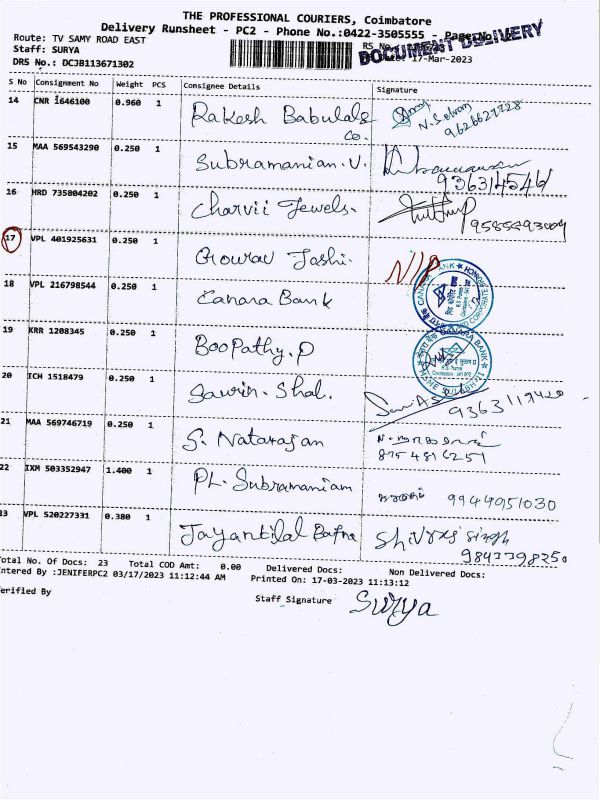 THE PROFESSIONAL COURIERS, Coimbatore
Delivery Runsheet - PC2 - Phone No.:0422-3505555 - Page No.
DOCUMENT DELIVERY
Route: TV SAMY ROAD EAST
Staff: SURYA
17-Mar-2023
DRS No.: DCJB113671302
S No Consignment No Weight PCS Consignee Details Signature
14 CNR 1646100 0.960 1 Rakesh Babulal & Co. N. Selvan
15 MAA 569543290 0.250 1 Subramanian. V.
16 HRD 735804202 0.250 1 Charvii Jewels.
17 VPL 401925631 0.250 1 Gourav Joshi.
18 VPL 216798544 0.250 1 Canara Bank
CANARA BANK
19 KRR 1208345 0.250 1 Boopathy. P
CANARA BANK
20 ICH 1518479 0.250 1 Sawin. Shal.
21 MAA 569746719 0.250 1 S. Natarajan
8754816251
22 IXM 503352947 1.400 1 PL. Subramaniam 9944951030
23 VPL 520227331 0.380 1 Jayantilal Bafna
9843398250
Total No. Of Docs: 23 Total COD Amt: 0.00 Delivered Docs: Non Delivered Docs:
ntered By :JENIFERPC2 03/17/2023 11:12:44 AM Printed On: 17-03-2023 11:13:12
erified By Staff Signature Surya